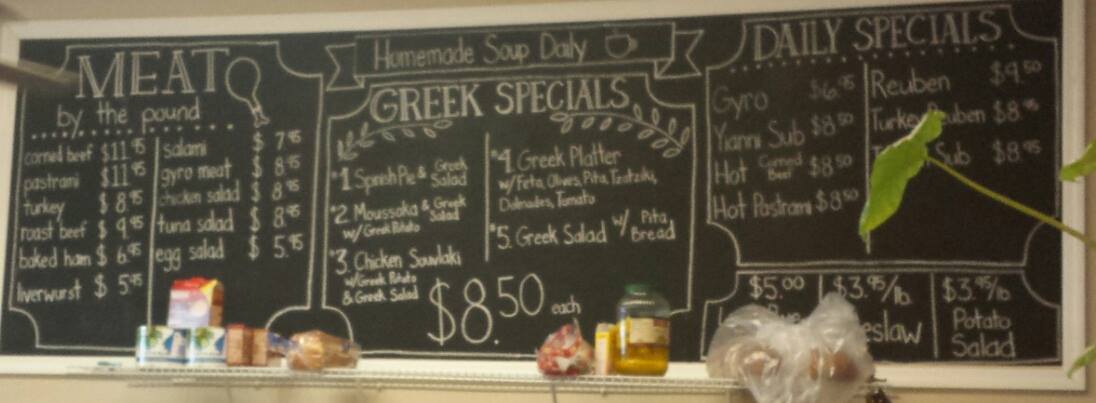 MEAT
by the pound
corned beef $11.95
pastrami $11.95
turkey $8.95
roast beef $9.95
baked ham $6.95
liverwurst $5.95
salami $7.95
gyro meat $8.95
chicken salad $8.95
tuna salad $8.95
egg salad $5.95
Homemade Soup Daily
GREEK SPECIALS
*1 Spinach Pie & Greek Salad
*2. Moussaka & Greek Salad
w/Greek Potato
*3. Chicken Souvlaki
w/Greek Potato
& Greek Salad
*4. Greek Platter
w/Feta, Olives, Pita, Tzatziki,
Dolmades, Tomato
*5. Greek Salad w/ Pita Bread
$8.50 each
DAILY SPECIALS
Gyro $6.95
Yianni Sub $8.50
Hot Corned Beef $8.50
Hot Pastrami $8.50
Reuben $9.50
Turkey $8.95
Sub $8.95
$5.00
$3.95/lb
$3.95/lb
Potato
Salad